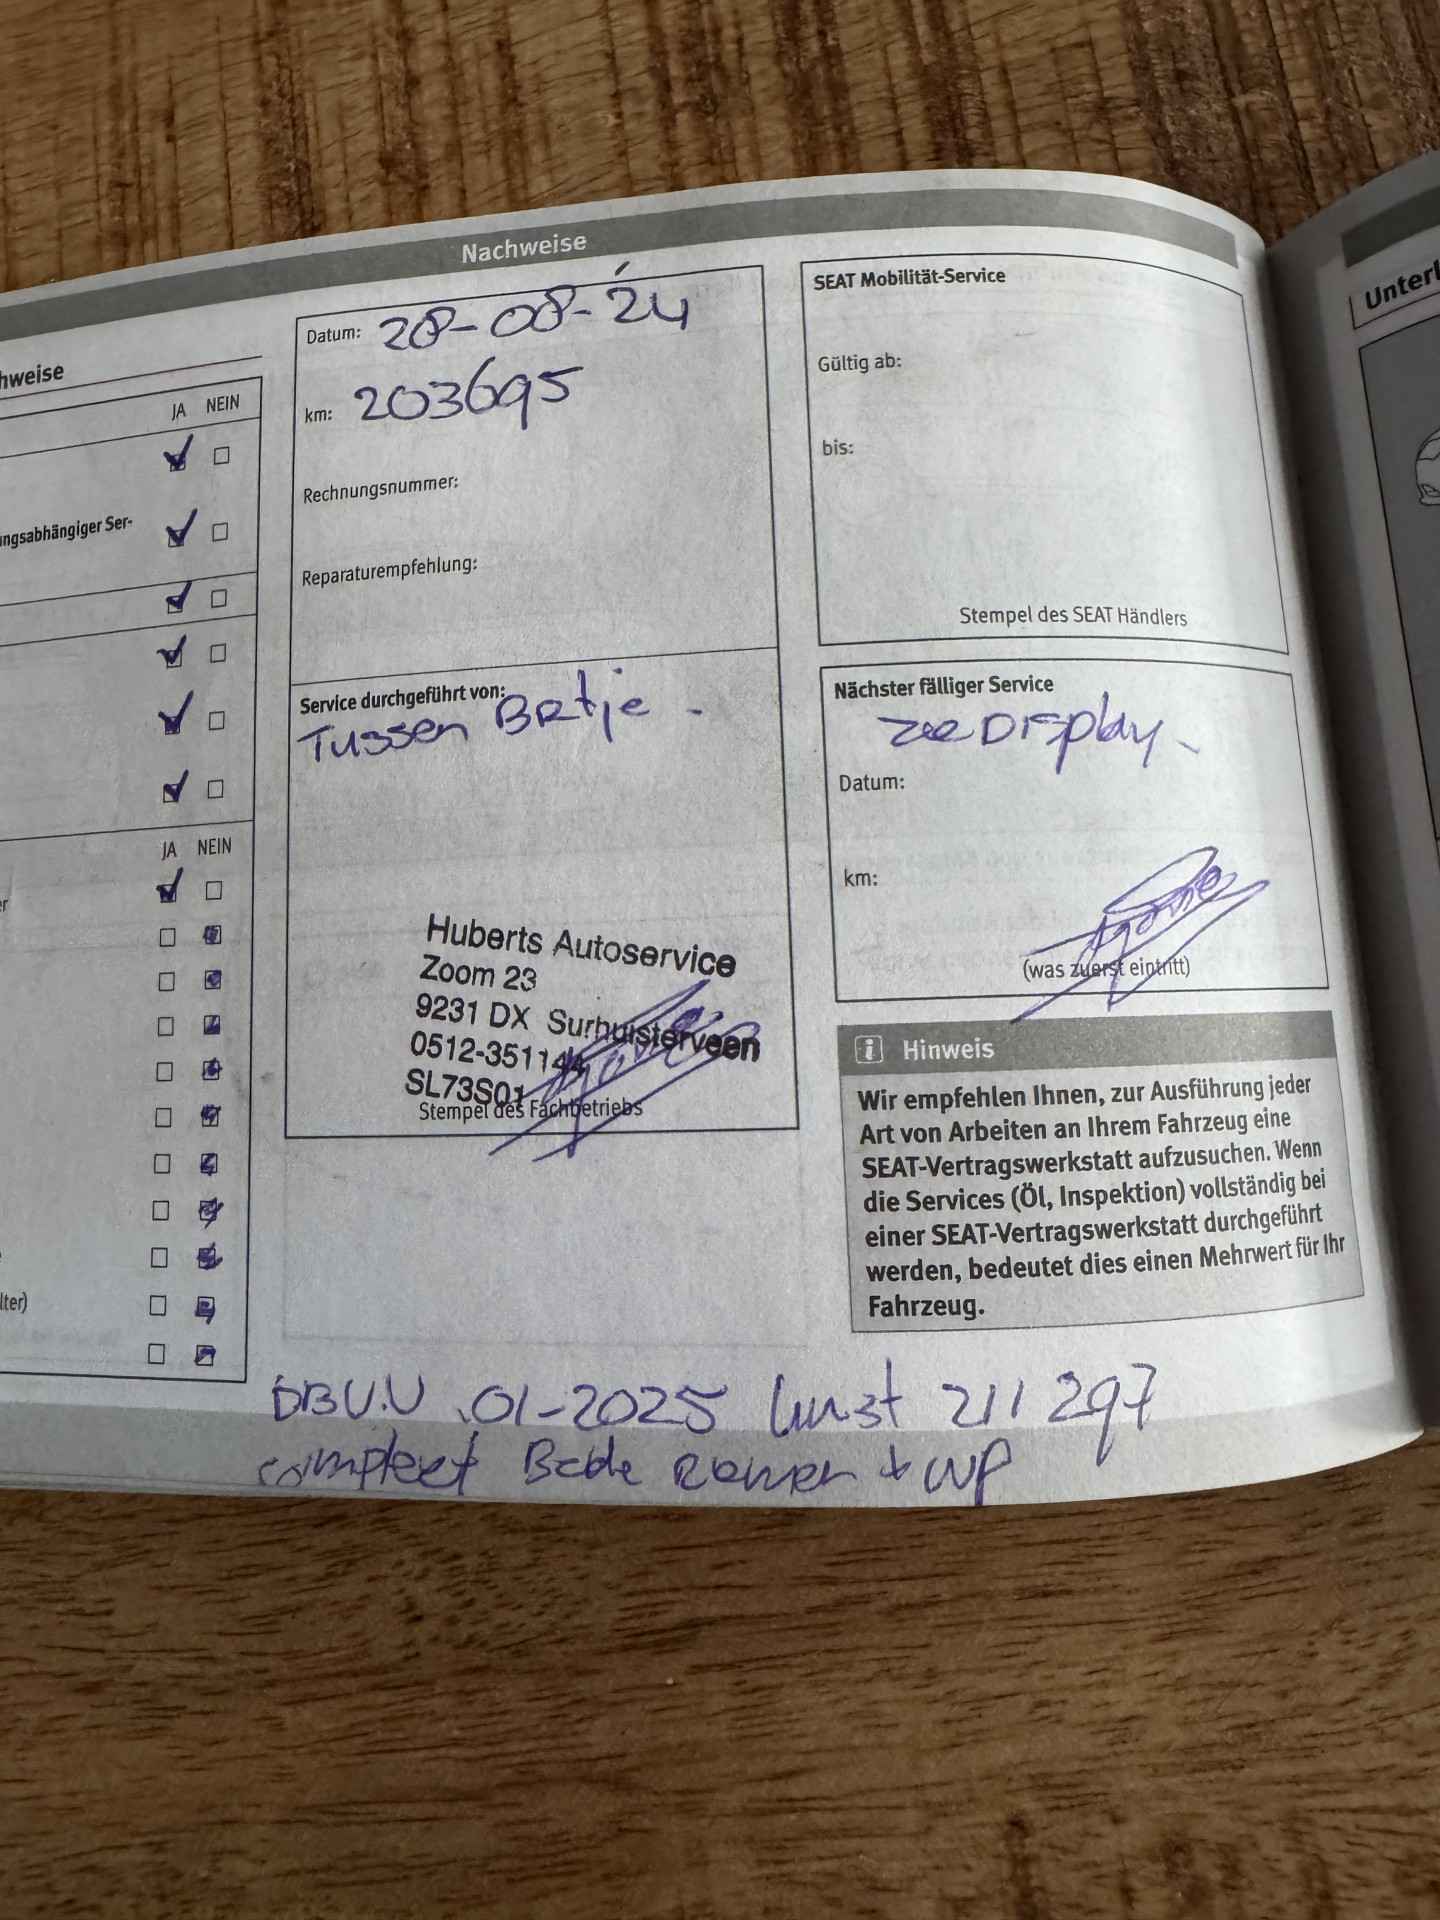 Nachweise
hweise
JA NEIN
ungsabhängiger Ser-
JA NEIN
er
lter)
Datum: 28-08-'24
km: 203695
Rechnungsnummer:
Reparaturempfehlung:
Service durchgeführt von:
Tussen BRtje -
Huberts Autoservice
Zoom 23
9231 DX Surhuisterveen
0512-351144
SL73S01
Stempel des Fachbetriebs
SEAT Mobilität-Service
Gültig ab:
bis:
Stempel des SEAT Händlers
Nächster fälliger Service
zie Display
Datum:
km:
(was zuerst eintritt)
Hinweis
Wir empfehlen Ihnen, zur Ausführung jeder
Art von Arbeiten an Ihrem Fahrzeug eine
SEAT-Vertragswerkstatt aufzusuchen. Wenn
die Services (Öl, Inspektion) vollständig bei
einer SEAT-Vertragswerkstatt durchgeführt
werden, bedeutet dies einen Mehrwert für Ihr
Fahrzeug.
01-2025 211 297
compleet + WP
Unterl